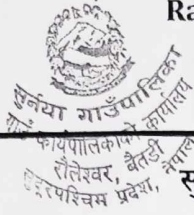 Ra
सुर्नया गाउँपालिका
गाउँ कार्यपालिकाको कार्यालय
रौलेश्वर, बैतडी
सुदूरपश्चिम प्रदेश, नेपाल